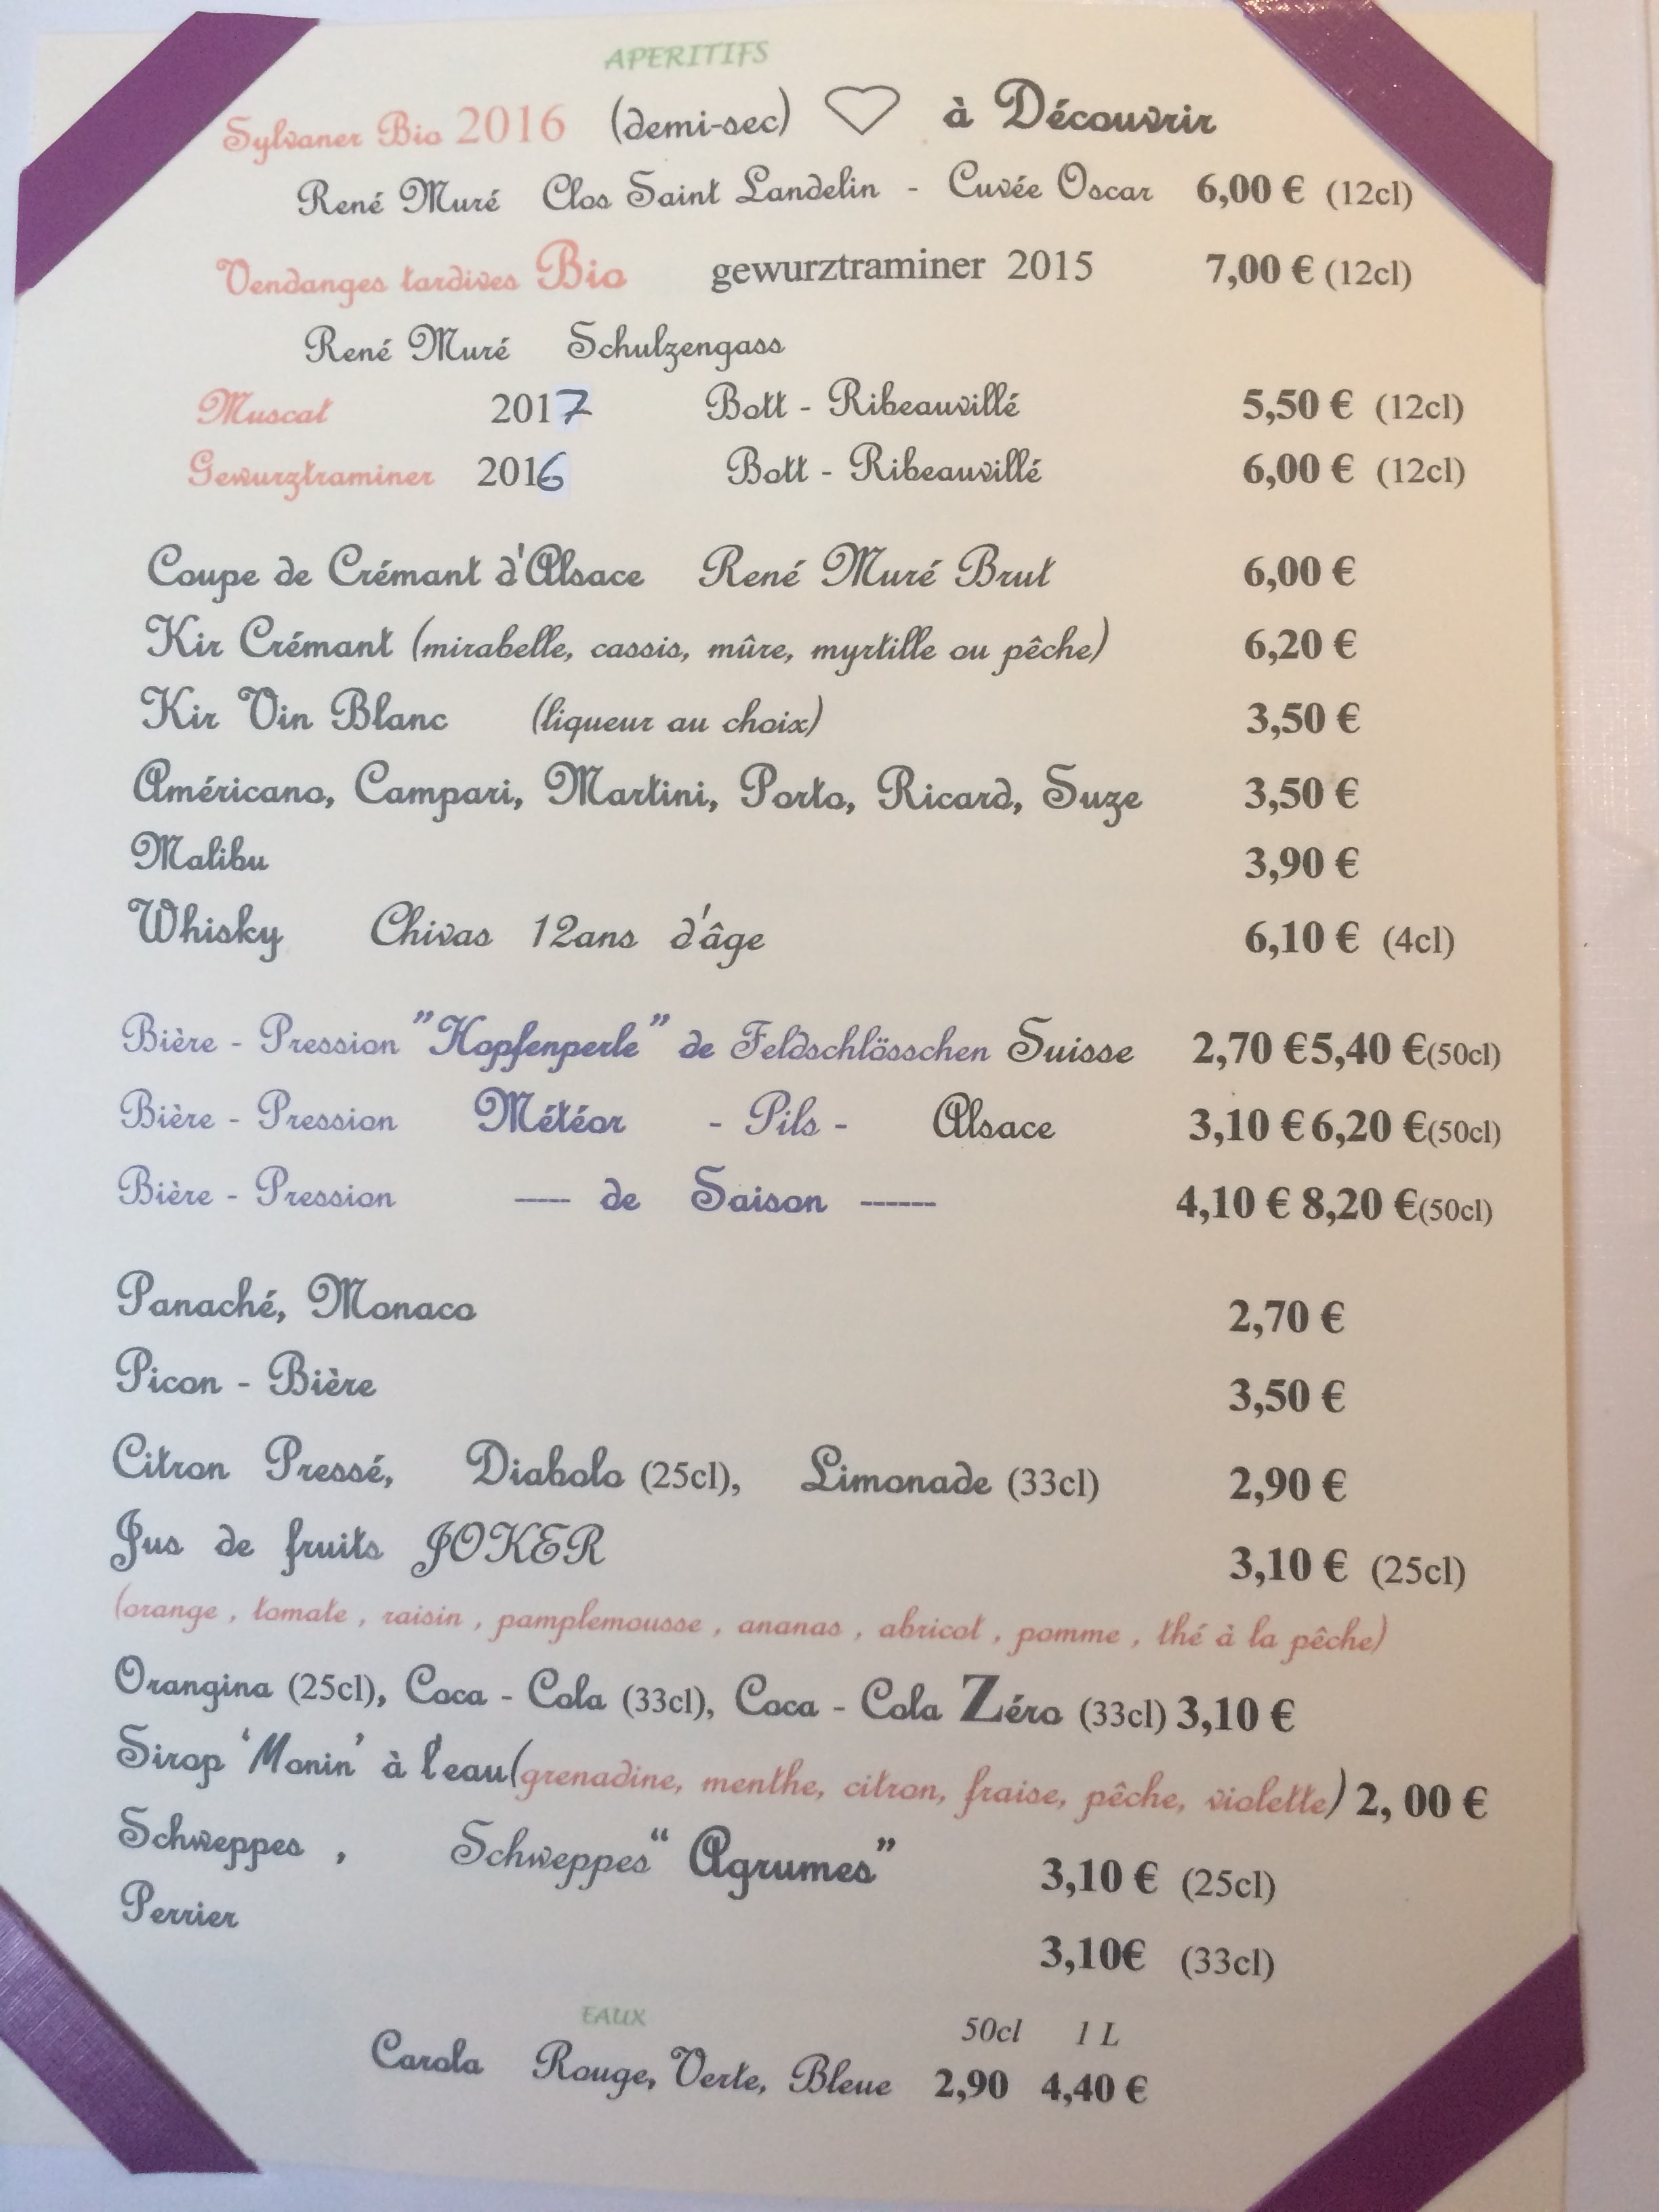 APERITIFS
Sylvaner Bio 2016 (demi-sec) à Découvrir
René Muré Clos Saint Landelin - Cuvée Oscar 6,00 € (12cl)
Vendanges tardives Bio gewurztraminer 2015 7,00 € (12cl)
René Muré Schulzengass
Muscat 2017 Bott - Ribeauvillé 5,50 € (12cl)
Gewurztraminer 2016 Bott - Ribeauvillé 6,00 € (12cl)
Coupe de Crémant d'Alsace René Muré Brut 6,00 €
Kir Crémant (mirabelle, cassis, mûre, myrtille ou pêche) 6,20 €
Kir Vin Blanc (liqueur au choix) 3,50 €
Américano, Campari, Martini, Porto, Ricard, Suze 3,50 €
Malibu 3,90 €
Whisky Chivas 12ans d'âge 6,10 € (4cl)
Bière - Pression "Hopfenperle" de Feldschlösschen Suisse 2,70 €5,40 €(50cl)
Bière - Pression Météor - Pils - Alsace 3,10 €6,20 €(50cl)
Bière - Pression ---- de Saison ------ 4,10 € 8,20 €(50cl)
Panaché, Monaco 2,70 €
Picon - Bière 3,50 €
Citron Pressé, Diabolo (25cl), Limonade (33cl) 2,90 €
Jus de fruits JOKER 3,10 € (25cl)
(orange , tomate , raisin , pamplemousse , ananas , abricot , pomme , thé à la pêche)
Orangina (25cl), Coca - Cola (33cl), Coca - Cola Zéro (33cl) 3,10 €
Sirop 'Monin' à l'eau(grenadine, menthe, citron, fraise, pêche, violette) 2, 00 €
Schweppes , Schweppes" Agrumes" 3,10 € (25cl)
Perrier 3,10€ (33cl)
EAUX 50cl 1 L
Carola Rouge, Verte, Bleue 2,90 4,40 €